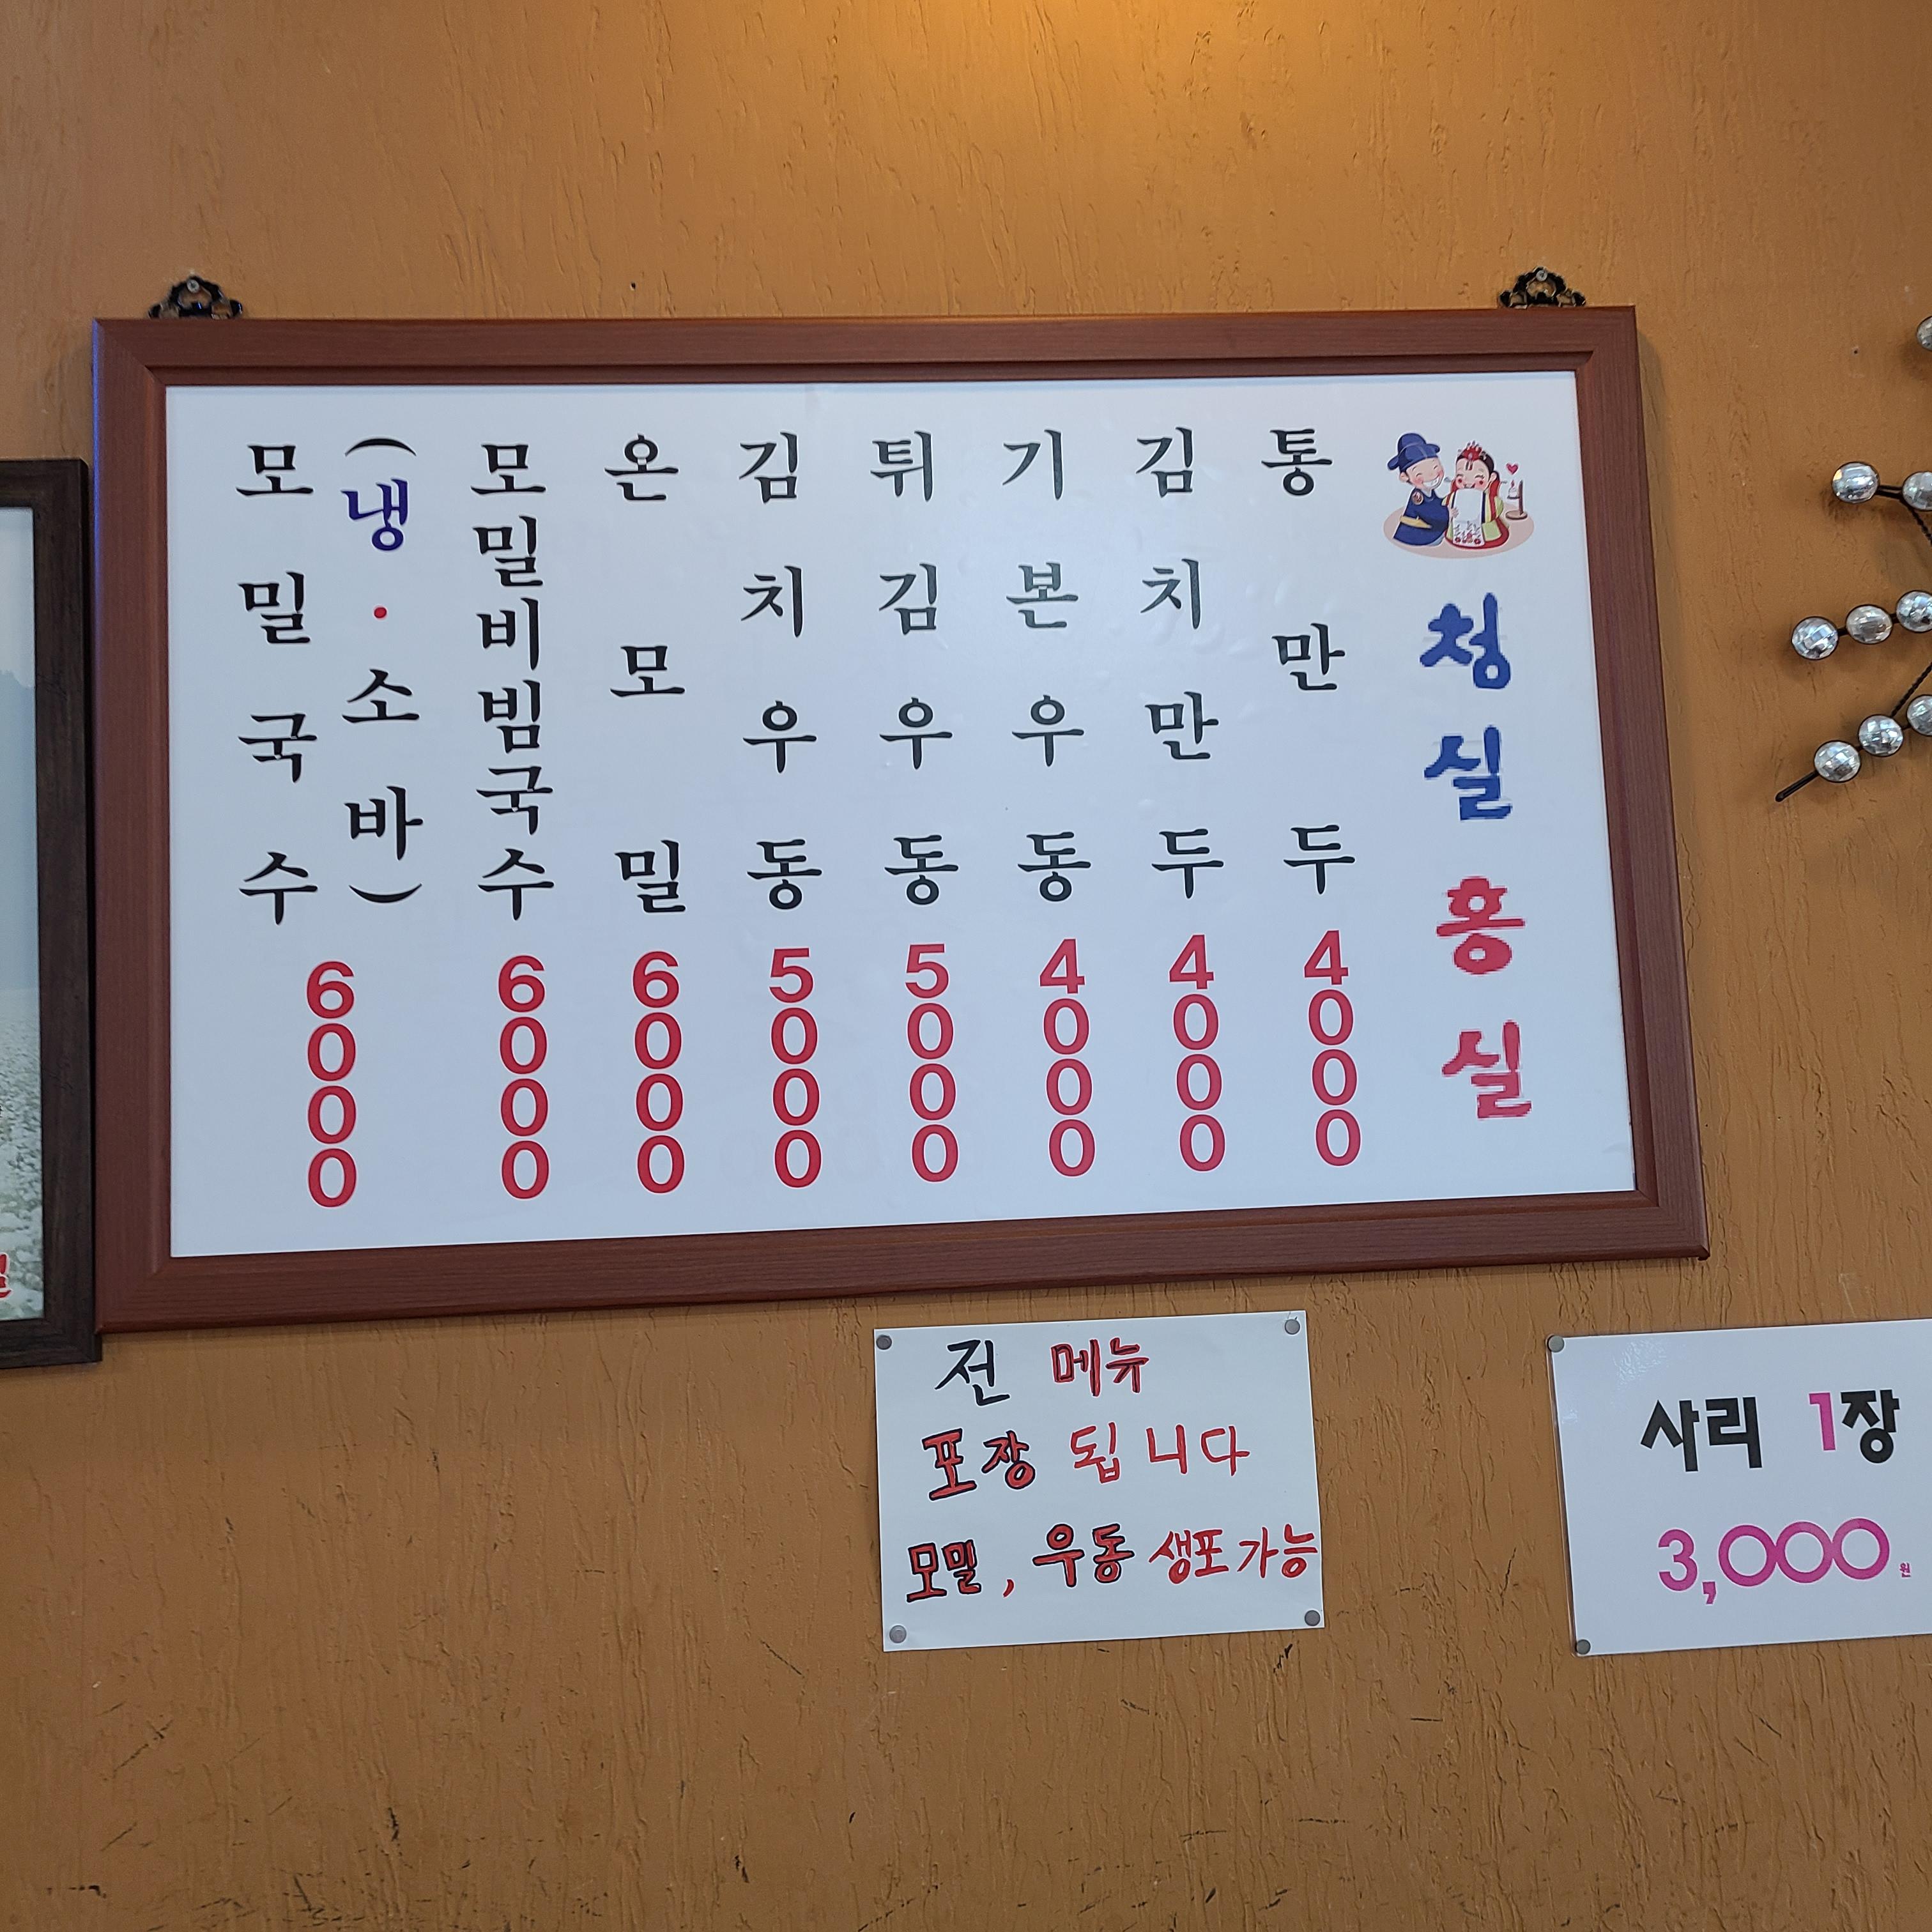 모밀국수
(냉·소바)
6000
모밀비빔국수
6000
온모밀
6000
김치우동
5000
튀김우동
5000
기본우동
4000
김치만두
4000
통만두
4000
청실홍실
전 메뉴
포장 됩니다
모밀, 우동 생포가능
사리 1장
3,000원